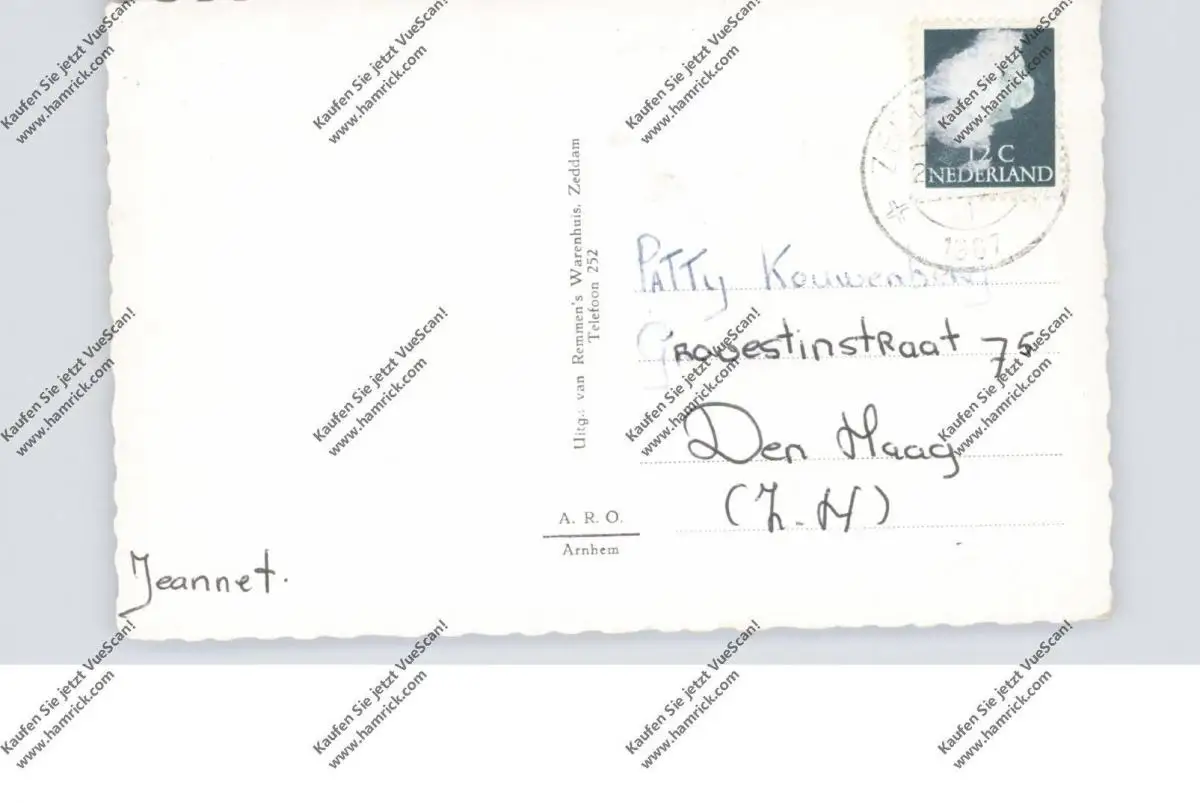 12 C
NEDERLAND
1967
Uitg. van Remmen's Warenhuis, Zeddam
Telefoon 252
Patty Kouwenberg
Grovestinstraat 75
Den Haag
(Z-H)
A. R. O.
Arnhem
Jeannet.
Kaufen Sie jetzt VueScan!
www.hamrick.com
Kaufen Sie jetzt VueScan!
www.hamrick.com
Kaufen Sie jetzt VueScan!
www.hamrick.com
Kaufen Sie jetzt VueScan!
www.hamrick.com
Kaufen Sie jetzt VueScan!
www.hamrick.com
Kaufen Sie jetzt VueScan!
www.hamrick.com
Kaufen Sie jetzt VueScan!
www.hamrick.com
Kaufen Sie jetzt VueScan!
www.hamrick.com
Kaufen Sie jetzt VueScan!
www.hamrick.com
Kaufen Sie jetzt VueScan!
www.hamrick.com
Kaufen Sie jetzt VueScan!
www.hamrick.com
Kaufen Sie jetzt VueScan!
www.hamrick.com